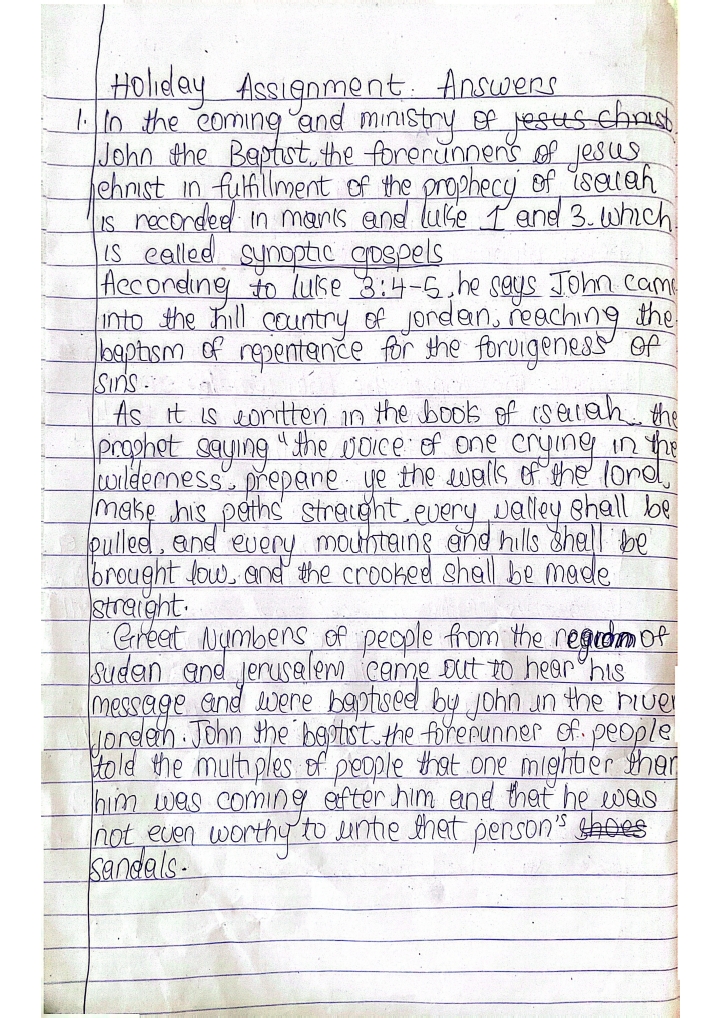 Holiday Assignment. Answers
1. In the coming and ministry of jesus christ
John the Baptist, the forerunners of jesus
christ in fulfillment of the prophecy of isaiah
is recorded in marks and luke 1 and 3. which
is called synoptic gospels
According to luke 3:4-5, he says John cam
into the hill country of jordan, reaching the
baptism of repentance for the forvigeness of
sins.
As it is written in the book of isaiah, the
prophet saying "the voice of one crying in the
wilderness, prepare ye the walls of the lord,
make his paths straight, every valley shall be
pulled, and every mountains and hills shall be
brought low, and the crooked shall be made
straight.
Great Numbers of people from the region of
sudan and jerusalem came out to hear his
message and were baptised by john in the river
jordan. John the baptist, the forerunner of. people
told the multiples of people that one mightier than
him was coming after him and that he was
not even worthy to untie that person's shoes
sandals.